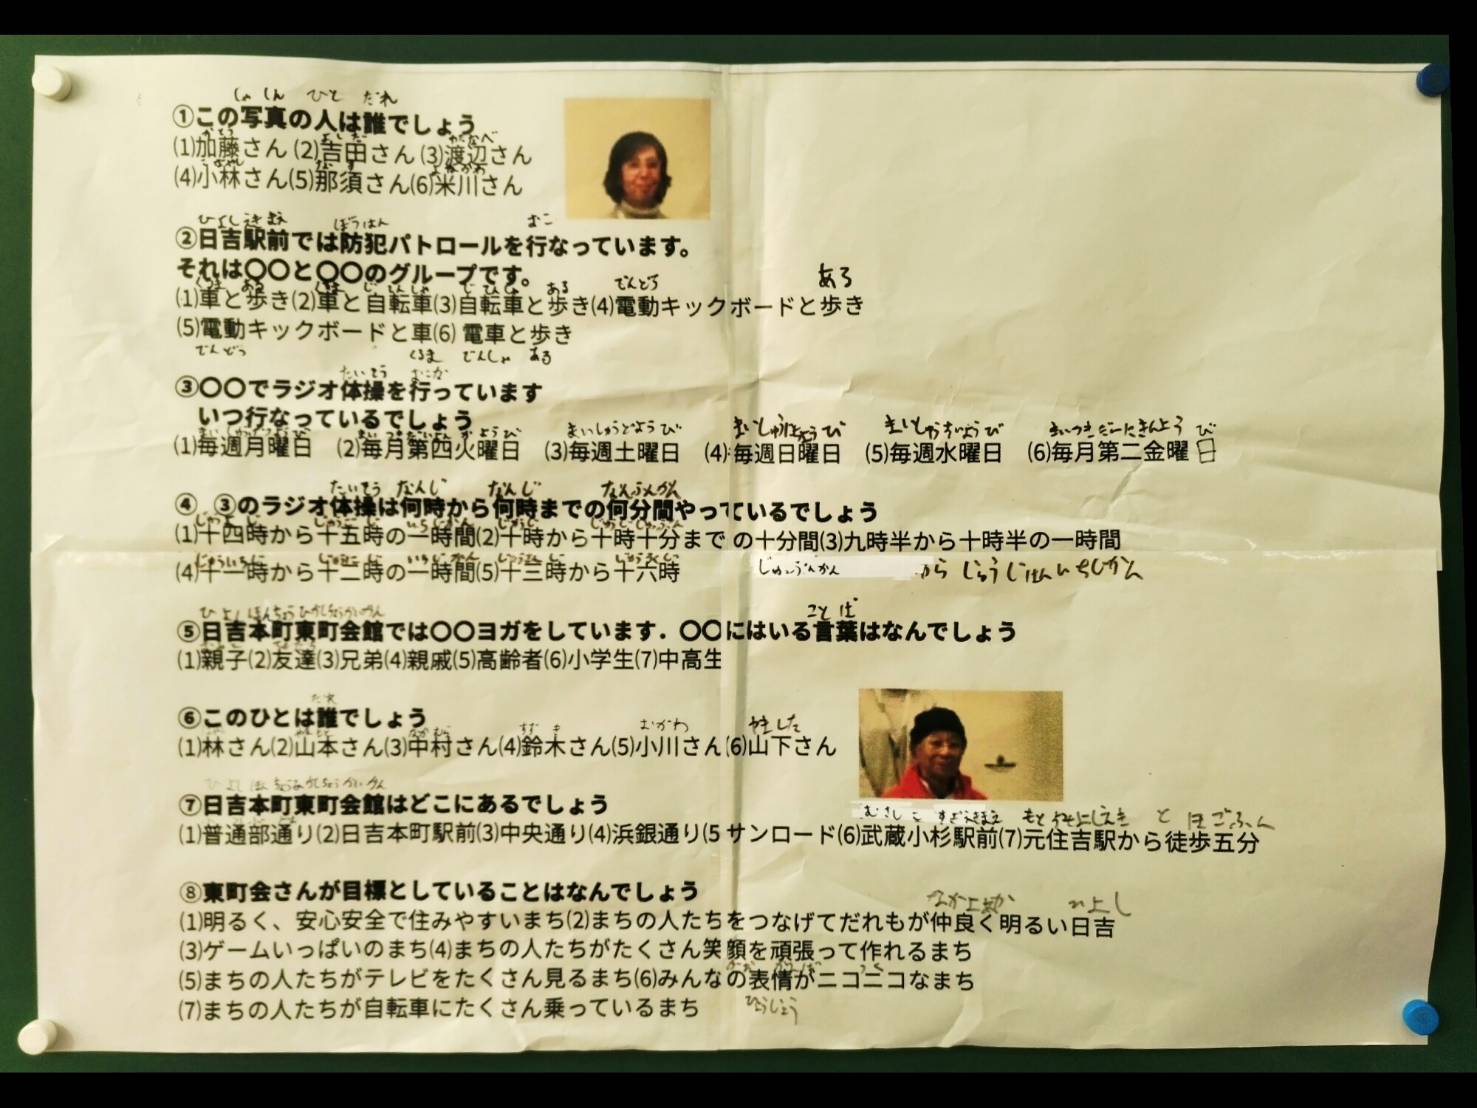 しゃしん ひと だれ
①この写真の人は誰でしょう
⑴加藤さん ⑵吉田さん ⑶渡辺さん
⑷小林さん⑸那須さん⑹米川さん
ぼうはん おこ
②日吉駅前では防犯パトロールを行なっています。
それは〇〇と〇〇のグループです。
ある
くるま ある でんどう
⑴車と歩き⑵車と自転車⑶自転車と歩き⑷電動キックボードと歩き
⑸電動キックボードと車⑹ 電車と歩き
でんどう くるま でんしゃ ある
たいそう おこな
③〇〇でラジオ体操を行っています
いつ行なっているでしょう
まいしゅうどようび まいしゅうにちようび
⑴毎週月曜日 ⑵毎月第四火曜日 ⑶毎週土曜日 ⑷毎週日曜日 ⑸毎週水曜日 ⑹毎月第二金曜日
たいそう なんじ なんじ なんぷんかん
④ ③のラジオ体操は何時から何時までの何分間やっているでしょう
⑴十四時から十五時の一時間⑵十時から十時十分までの十分間⑶九時半から十時半の一時間
⑷十一時から十二時の一時間⑸十三時から十六時
から じゅうじはんいちじかん
ことば
⑤日吉本町東町会館では〇〇ヨガをしています．〇〇にはいる言葉はなんでしょう
⑴親子⑵友達⑶兄弟⑷親戚⑸高齢者⑹小学生⑺中高生
⑥このひとは誰でしょう
すずき おがわ やました
⑴林さん⑵山本さん⑶中村さん⑷鈴木さん⑸小川さん⑹山下さん
⑦日吉本町東町会館はどこにあるでしょう
とほごふん
⑴普通部通り⑵日吉本町駅前⑶中央通り⑷浜銀通り⑸サンロード⑹武蔵小杉駅前⑺元住吉駅から徒歩五分
⑧東町会さんが目標としていることはなんでしょう
ひよし
⑴明るく、安心安全で住みやすいまち⑵まちの人たちをつなげてだれもが仲良く明るい日吉
⑶ゲームいっぱいのまち⑷まちの人たちがたくさん笑顔を頑張って作れるまち
⑸まちの人たちがテレビをたくさん見るまち⑹みんなの表情がニコニコなまち
⑺まちの人たちが自転車にたくさん乗っているまち
ひょうじょう